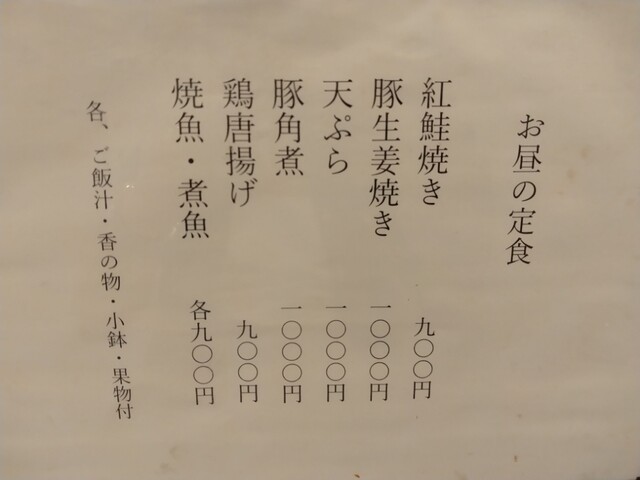 お昼の定食
紅鮭焼き 九〇〇円
豚生姜焼き 一〇〇〇円
天ぷら 一〇〇〇円
豚角煮 一〇〇〇円
鶏唐揚げ 九〇〇円
焼魚・煮魚 各九〇〇円
各、ご飯汁・香の物・小鉢・果物付